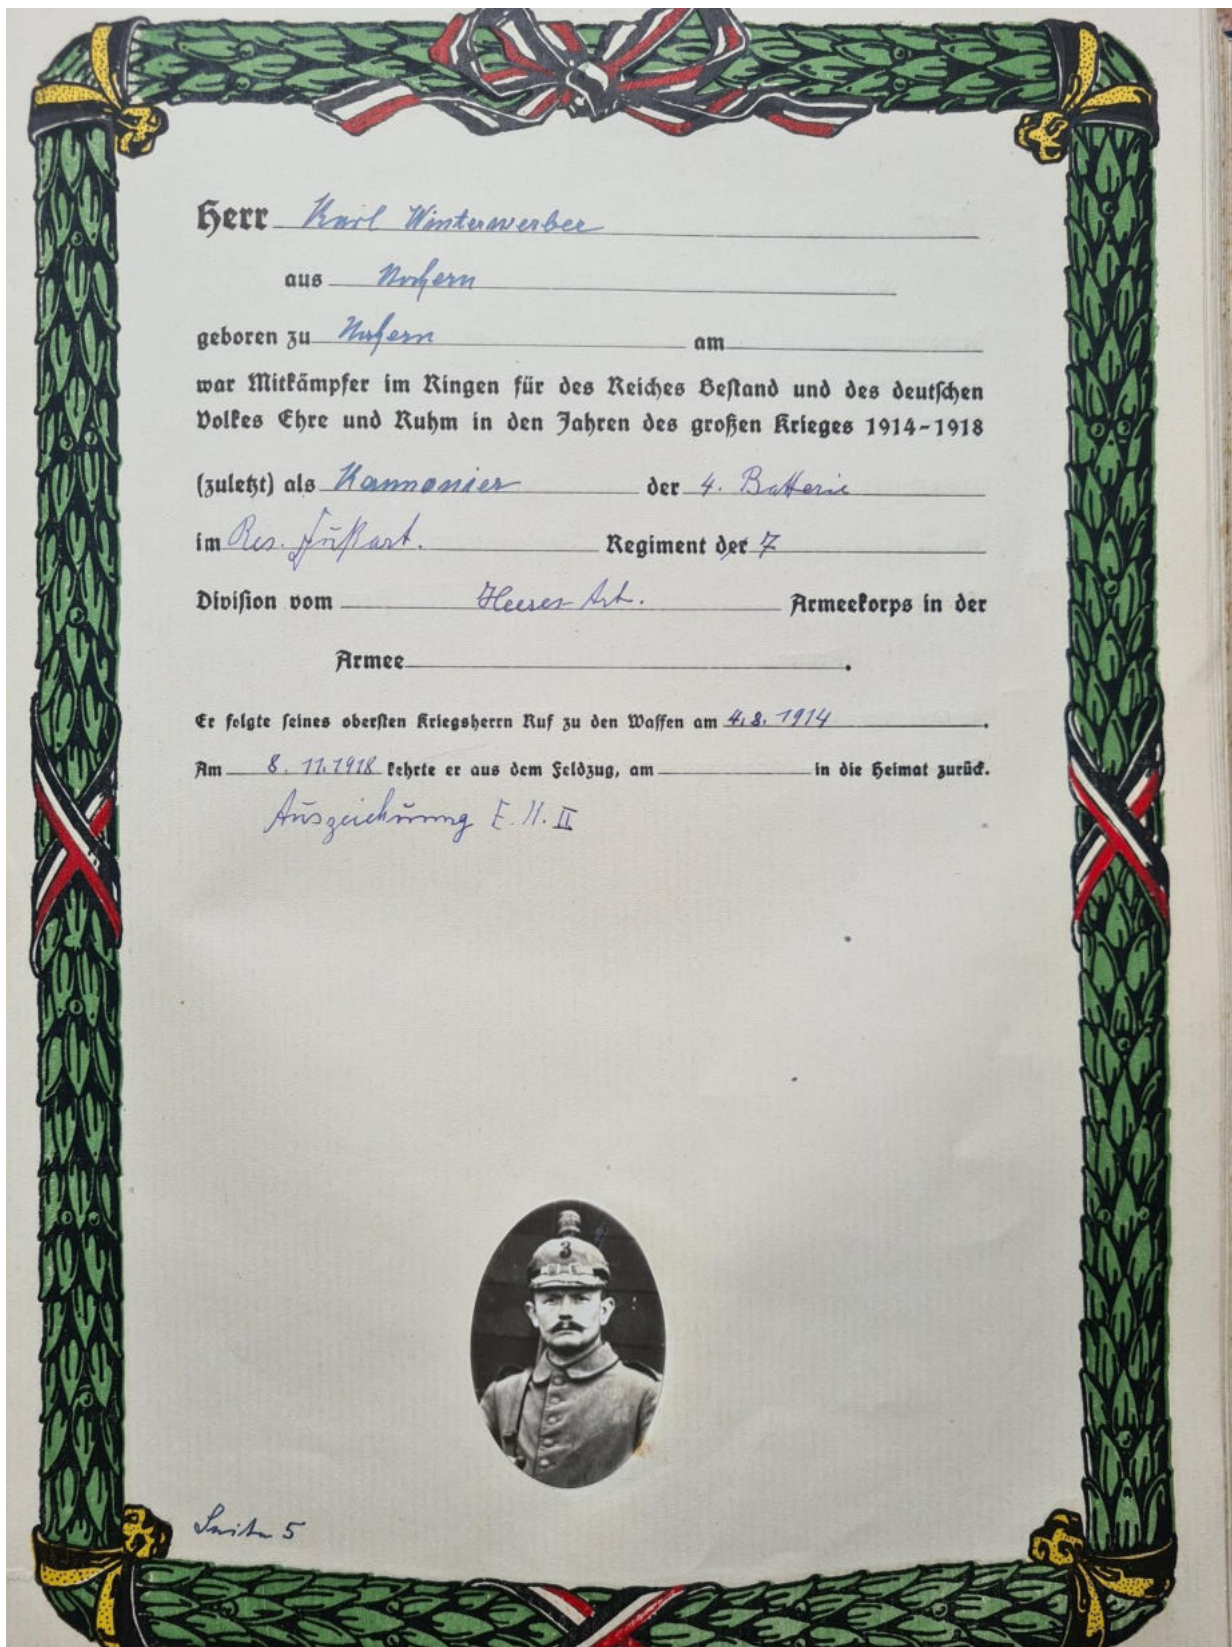 Herr Karl Winterwerber
aus Nochern
geboren zu Nochern am
war Mitkämpfer im Ringen für des Reiches Bestand und des deutschen
Volkes Ehre und Ruhm in den Jahren des großen Krieges 1914-1918
(zuletzt) als Kannonier der 4. Batterie
im Res. Fußart. Regiment der 7
Division vom Heeres-Art. Armeekorps in der
Armee .
Er folgte seines obersten Kriegsherrn Ruf zu den Waffen am 4.8.1914 .
Am 8.11.1918 kehrte er aus dem Feldzug, am in die Heimat zurück.
Auszeichnung E.K. II
3
Seite 5